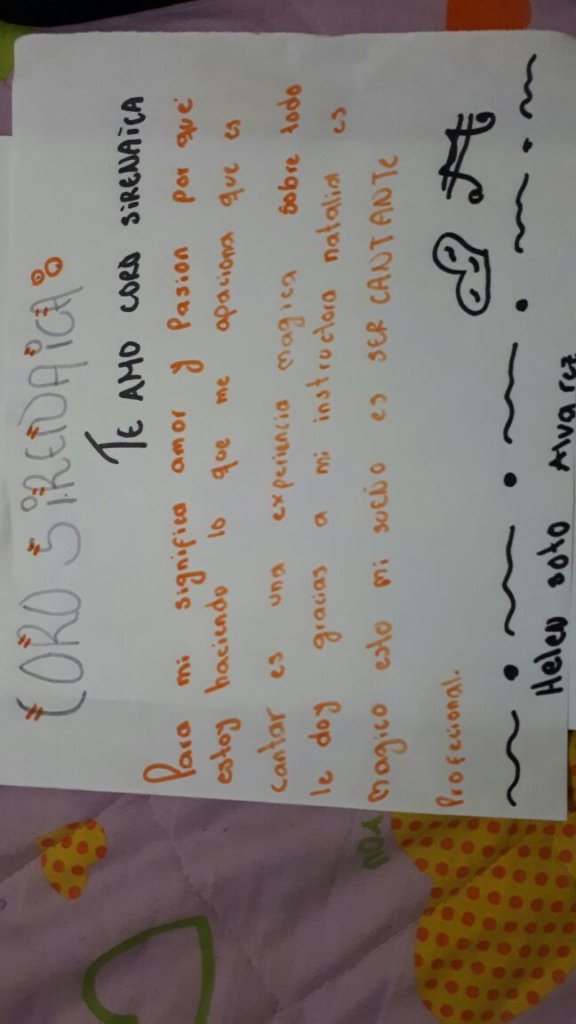 CORO SiRENAiCA
TE AMO CORO SiRENAiCA
Para mi significa amor y Pasion por que
estoy haciendo lo que me apaciona que es
cantar es una experiencia magica sobre todo
le doy gracias a mi instructora natalia es
magico esto mi sueño es SER CANTANTE
Profecional.
Helen soto Alvarez